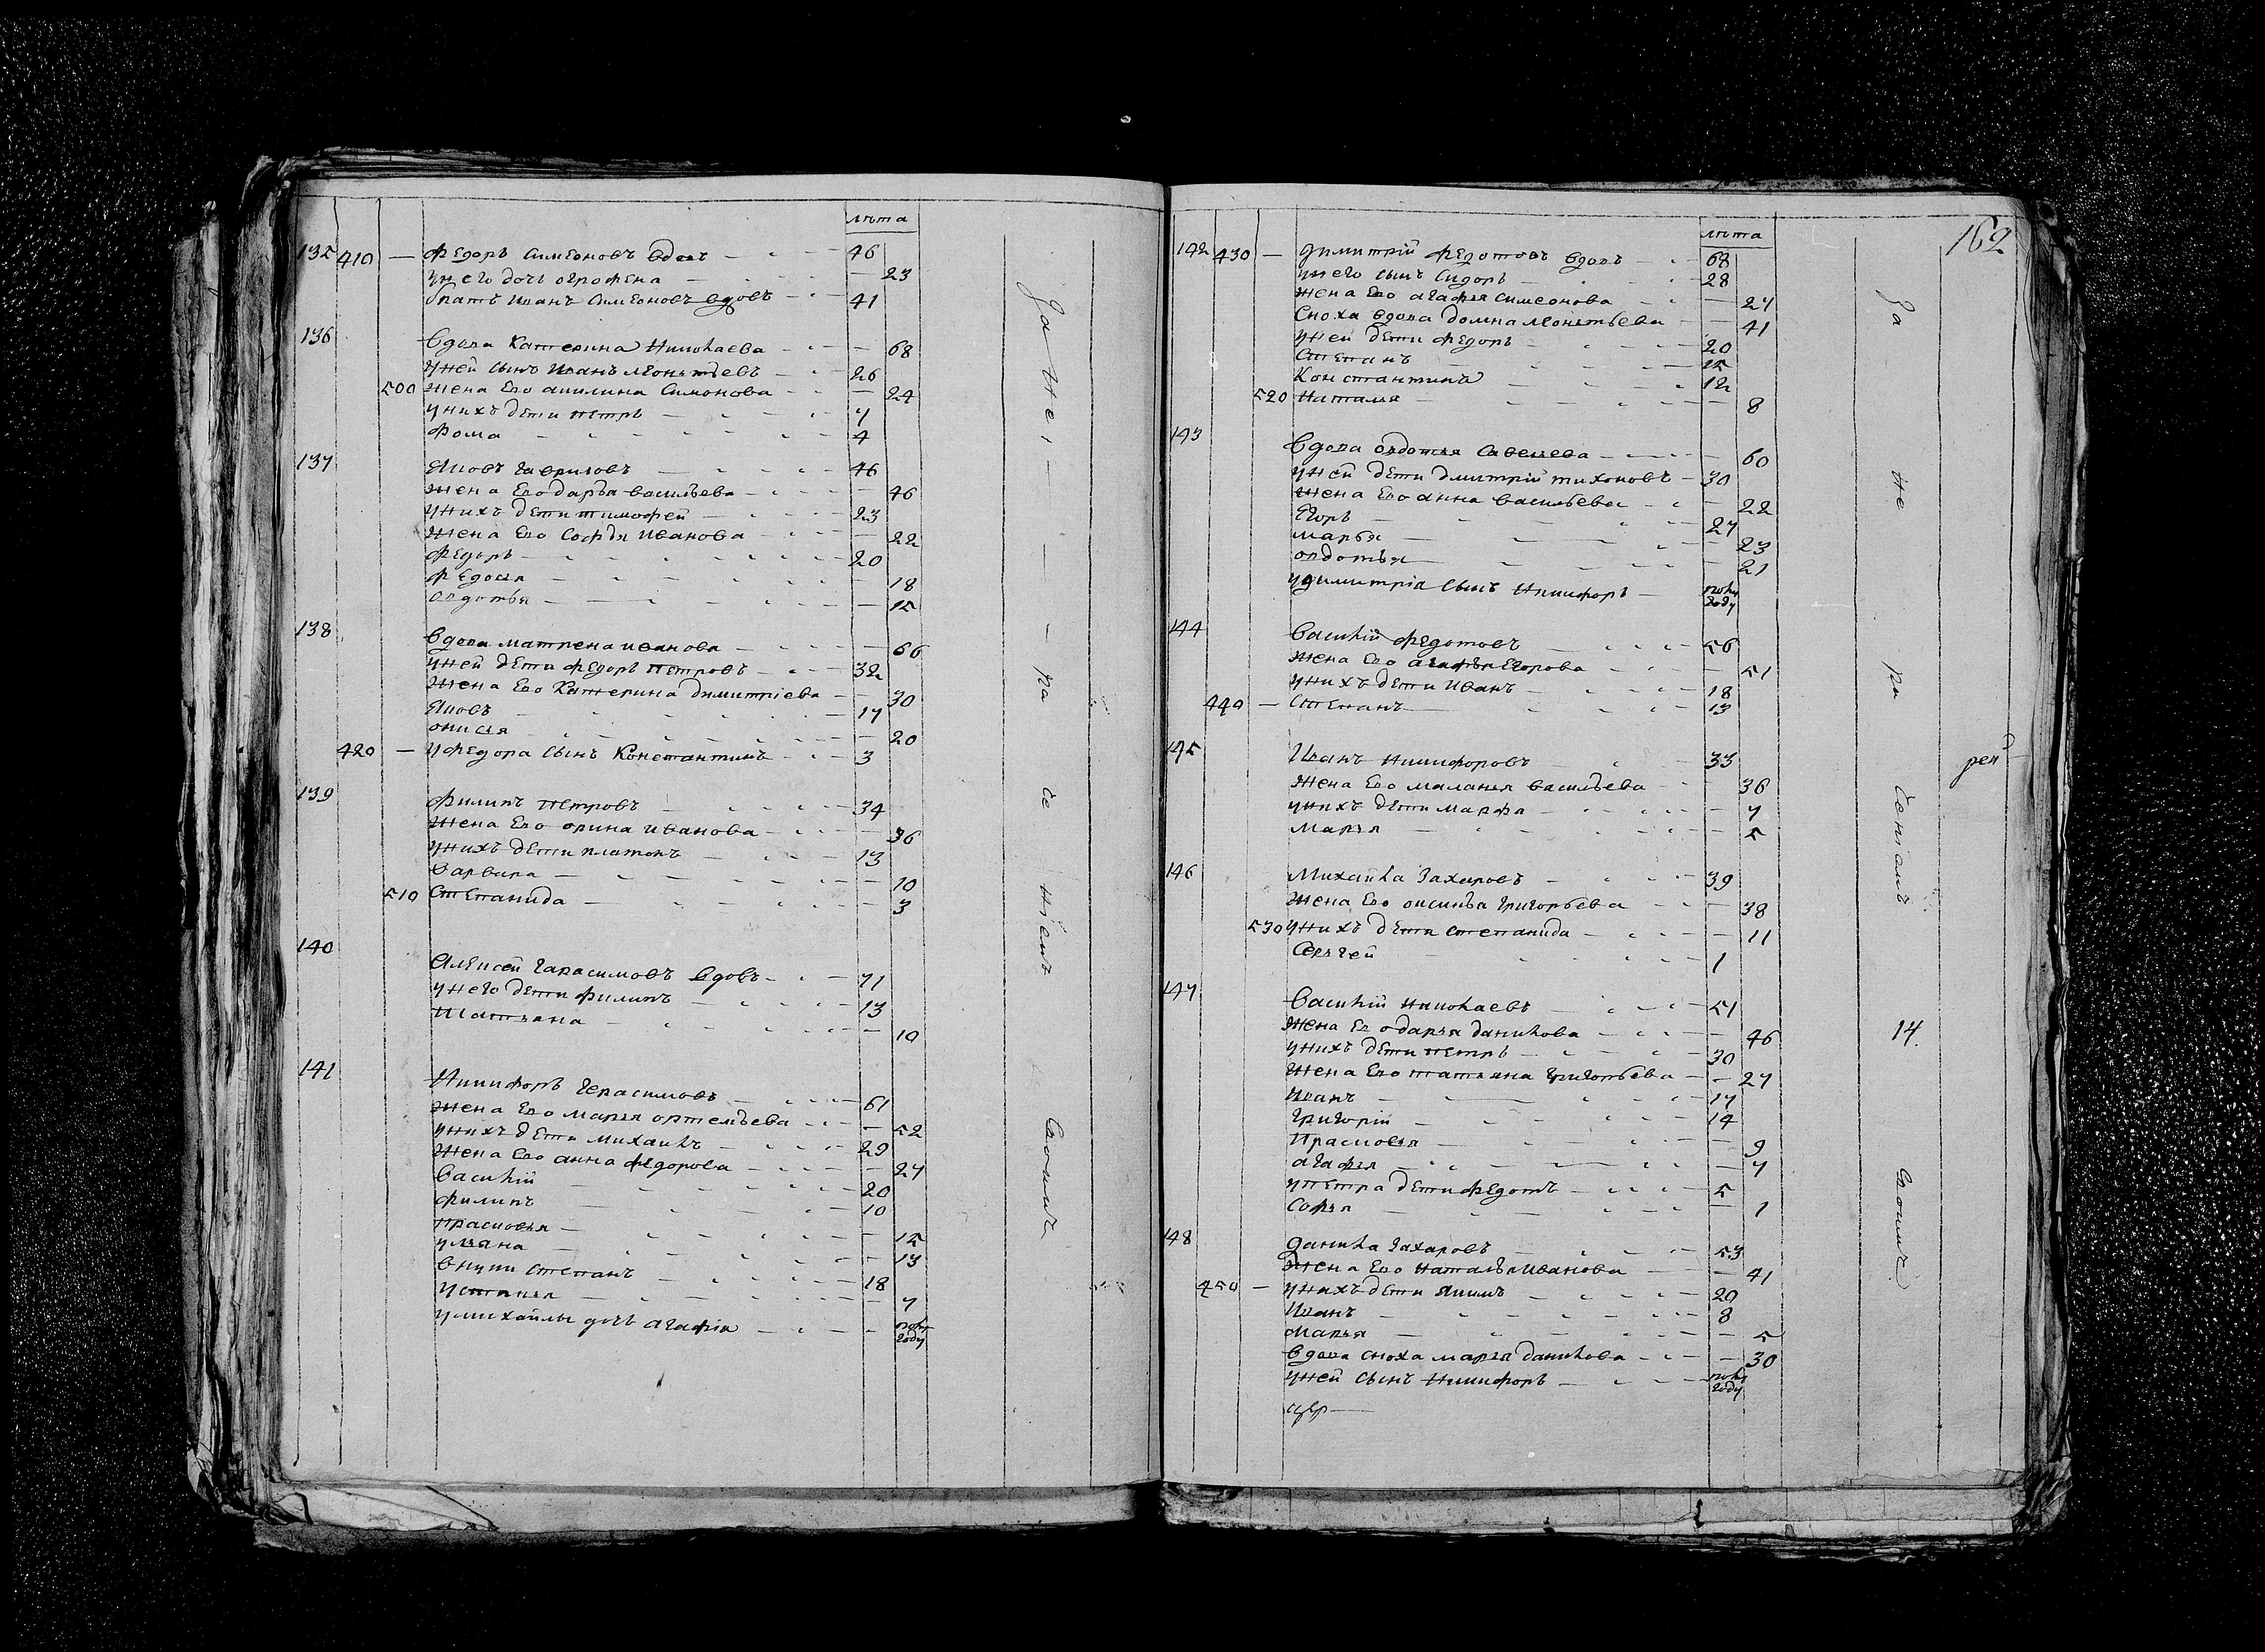 лѣта
135 410 — Федоръ Симеоновъ вдовъ 46
у него дочь огрофена 23
братъ Иванъ Симеоновъ вдовъ 41
136 Вдова Катерина Николаева 68
у ней сынъ Иванъ Леонтьевъ 26
500 жена Его акилина Симонова 24
у нихъ дети петръ 7
Фома 4
137 Яковъ Гавриловъ 46
жена Его дарья васильева 46
у нихъ дети тимофей 23
жена Его Софья Иванова 22
Федоръ 20
Федосья 18
овдотья 15
138 Вдова матрена иванова 66
у ней дети федоръ петровъ 32
жена Его Катерина димитріева 30
Яковъ 17
онисья 20
420 — у федора сынъ Константинъ 3
139 Филипъ петровъ 34
жена Его орина иванова 36
у нихъ дети платонъ 13
варвара 10
510 Степанида 3
140 Алексей Гарасимовъ вдовъ 71
у него дети филипъ 13
татьяна 10
141 Никифоръ Герасимовъ 61
жена Его марья ортемьева 52
у нихъ дети михаилъ 29
жена Его анна федорова 27
Василій 20
филипъ 10
прасковья 15
ульяна 13
внуки степанъ 18
устинья 7
у михайлы дочь агафія полу году
За не ра че ніемъ Своимъ
162
лѣта
142 430 — димитрій федотовъ вдовъ 68
у него сынъ Сидоръ 28
жена Его агафья симеонова 27
Сноха вдова домна леонтьева 41
у ней дети федоръ 20
Степанъ 15
Константинъ 12
520 наталья 8
143 Вдова овдотья Савельева 60
у ней дети дмитрій тихоновъ 30
жена Его анна васильева 22
Егоръ 27
марья 23
овдотья 21
у димитрія сынъ никифоръ полу году
144 Василій федотовъ 56
жена Его агафья Егорова 51
у нихъ дети Иванъ 18
440 — Степанъ 13
145 Иванъ никифоровъ 33
жена Его маланья васильева 36
у нихъ дети марфа 7
марья 5
146 Михайла Захаровъ 39
жена Его оксинья григорьева 38
530 у нихъ дети степанида 11
Сергей 1
147 Василій николаевъ 51
жена Его дарья данилова 46
у нихъ дети петръ 30
жена Его татьяна григорьева 27
Иванъ 17
Григорій 14
прасковья 9
агафья 7
у петра дети федотъ 5
Софья 1
148 данила Захаровъ 53
жена Его наталья иванова 41
450 — у нихъ дети якимъ 20
Иванъ 8
марья 5
вдова сноха марья данилова 30
у ней сынъ никифоръ полу году
За не ра ченіемъ 14. Своимъ
рей